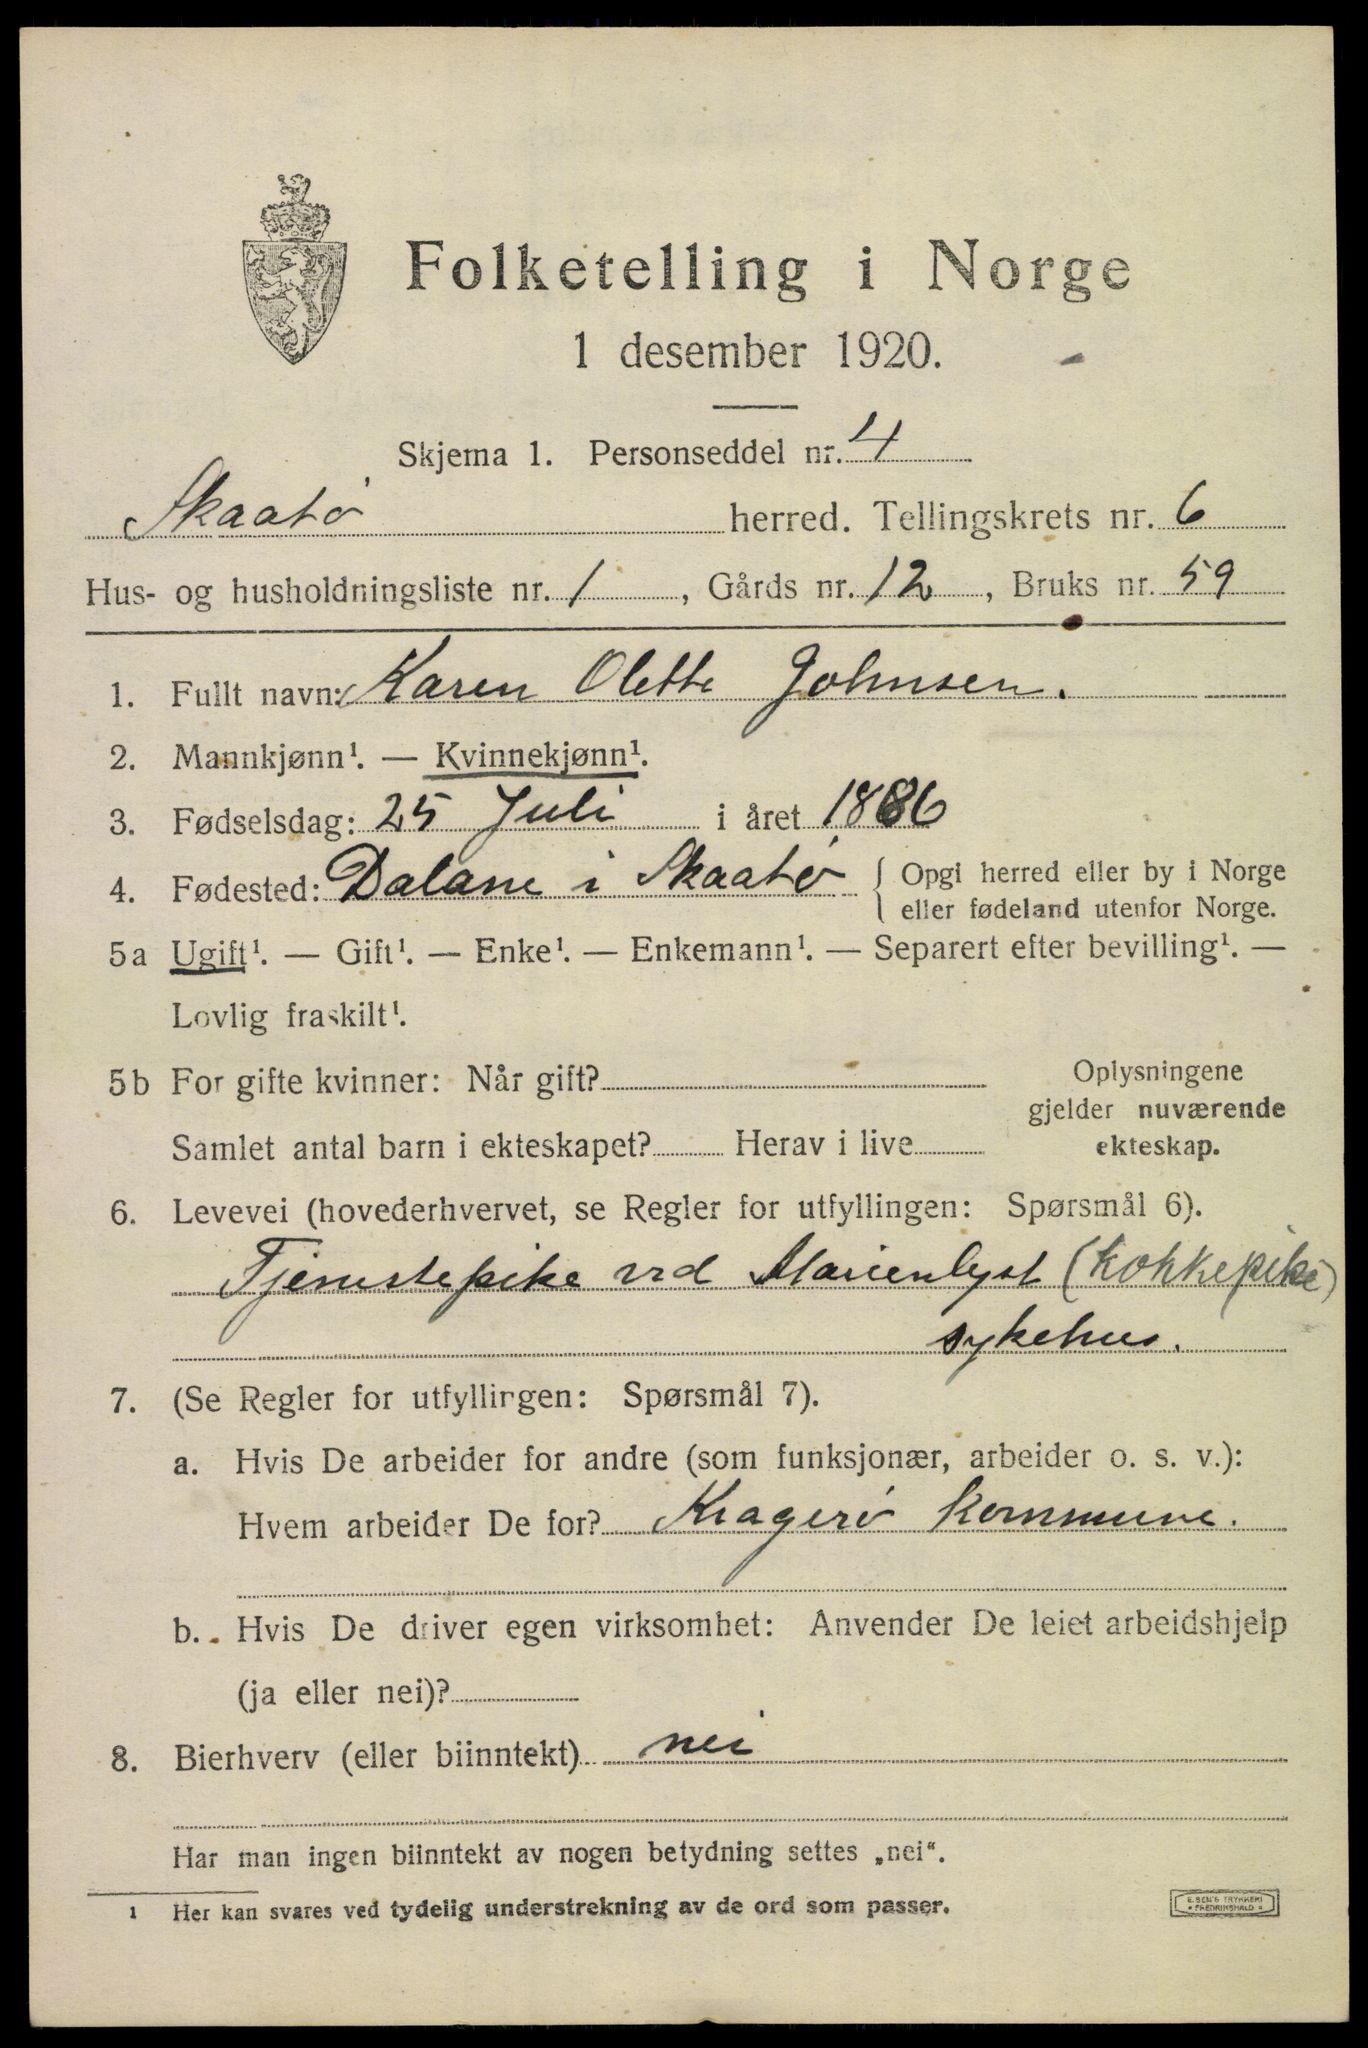 Folketelling i Norge
1 desember 1920.
Skjema 1. Personseddel nr. 4
Skaatø herred. Tellingskrets nr. 6
Hus- og husholdningsliste nr. 1, Gårds nr. 12, Bruks nr. 59
1. Fullt navn: Karen Olette Johnsen.
2. Mannkjønn¹. — Kvinnekjønn¹.
3. Fødselsdag: 25 Juli i året 1886
4. Fødested: Dalane i Skaatø { Opgi herred eller by i Norge
eller fødeland utenfor Norge.
5a Ugift¹. — Gift¹. — Enke¹. — Enkemann¹. — Separert efter bevilling¹. —
Lovlig fraskilt¹.
5b For gifte kvinner: Når gift?
Samlet antal barn i ekteskapet? Herav i live
Oplysningene
gjelder nuværende
ekteskap.
6. Levevei (hovederhvervet, se Regler for utfyllingen: Spørsmål 6).
Tjenestepike ved Marienlyst (kokkepike)
sykehus.
7. (Se Regler for utfyllingen: Spørsmål 7).
a. Hvis De arbeider for andre (som funksjonær, arbeider o. s. v.):
Hvem arbeider De for? Kragerø kommune.
b. Hvis De driver egen virksomhet: Anvender De leiet arbeidshjelp
(ja eller nei)?
8. Bierhverv (eller biinntekt) nei
Har man ingen biinntekt av nogen betydning settes „nei“.
1 Her kan svares ved tydelig understrekning av de ord som passer.
E. SEM'S TRYKKERI
• FREDRIKSHALD •